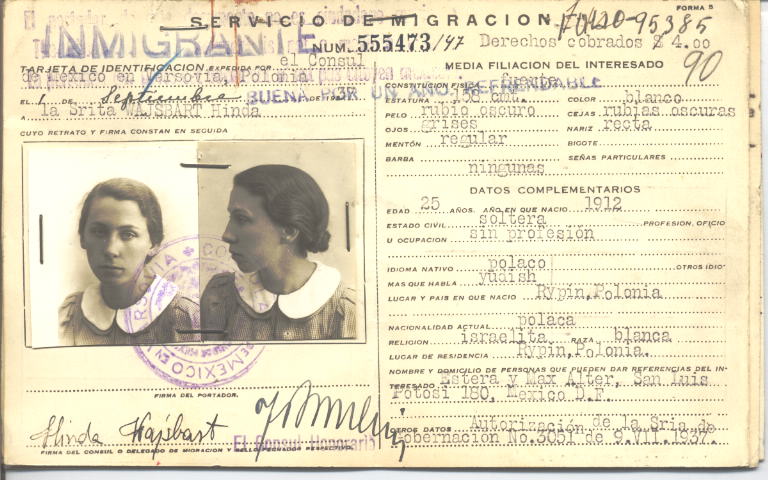 SERVICIO DE MIGRACION
FORMA 5
INMIGRANTE
NUM. 555473/47
Derechos cobrados $ 4.00
90
TARJETA DE IDENTIFICACION EXPEDIDA POR el Consul
de México en Varsovia, Polonia
EL 1 DE Septiembre DE 1937
BUENA POR UN AÑO. REFRENDABLE
A la Srita WAJSBART Hinda
CUYO RETRATO Y FIRMA CONSTAN EN SEGUIDA
FIRMA DEL PORTADOR.
Hinda Wajsbart
El Consul Honorario
FIRMA DEL CONSUL O DELEGADO DE MIGRACION Y SELLO FECHADOR RESPECTIVO.
MEDIA FILIACION DEL INTERESADO
CONSTITUCION FISICA fuerte
ESTATURA 158 cmt. COLOR blanco
PELO rubio oscuro CEJAS rubias oscuras
OJOS grises NARIZ recta
MENTÓN regular BIGOTE
BARBA SEÑAS PARTICULARES
ningunas
DATOS COMPLEMENTARIOS
EDAD 25 AÑOS. AÑO EN QUE NACIO 1912
ESTADO CIVIL soltera PROFESION, OFICIO
U OCUPACION sin profesión
IDIOMA NATIVO polaco OTROS IDIO-
MAS QUE HABLA yudish
LUGAR Y PAIS EN QUE NACIO Rypin, Polonia
NACIONALIDAD ACTUAL polaca
RELIGION israelita RAZA blanca
LUGAR DE RESIDENCIA Rypin, Polonia.
NOMBRE Y DOMICILIO DE PERSONAS QUE PUEDEN DAR REFERENCIAS DEL IN-
TERESADO Estera y Max Alter, San Luis
Potosí 180, Mexico D.F.
OTROS DATOS Autorización de la Sria de
Gobernación No. 3051 de 9.VII.1937.